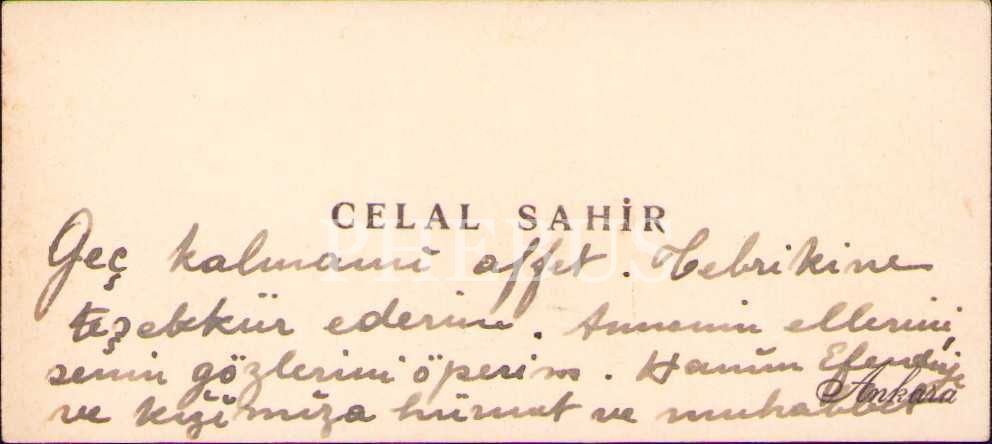 CELAL SAHİR
PHEBUS
Geç kalmamı affet. Tebrikine
teşekkür ederim. Annenin ellerini,
senin gözlerini öperim. Hanım Efendiye
Ankara
ve kızımıza hürmet ve muhabbet